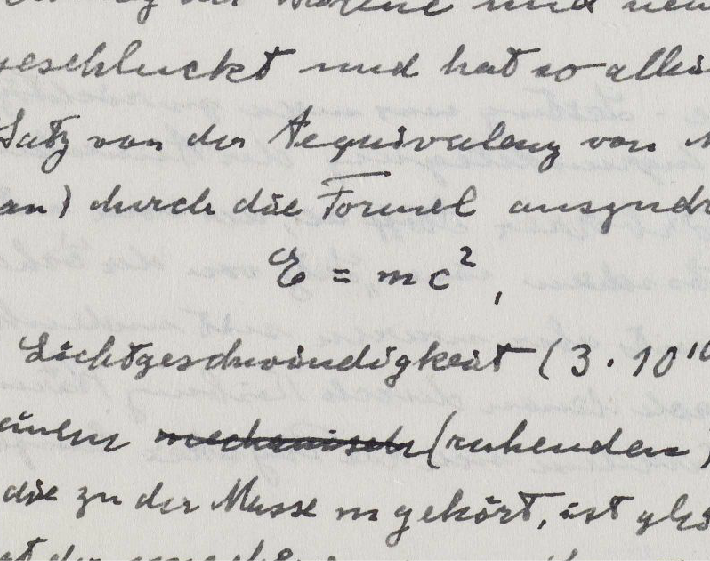 geschluckt und hat so allei
Satz von der Aequivalenz von
an) durch die Formel auszudr
E = mc²,
Lichtgeschwindigkeit (3 . 10¹⁰
einem mechanisch (ruhenden)
die zu der Masse m gehört, ist glei